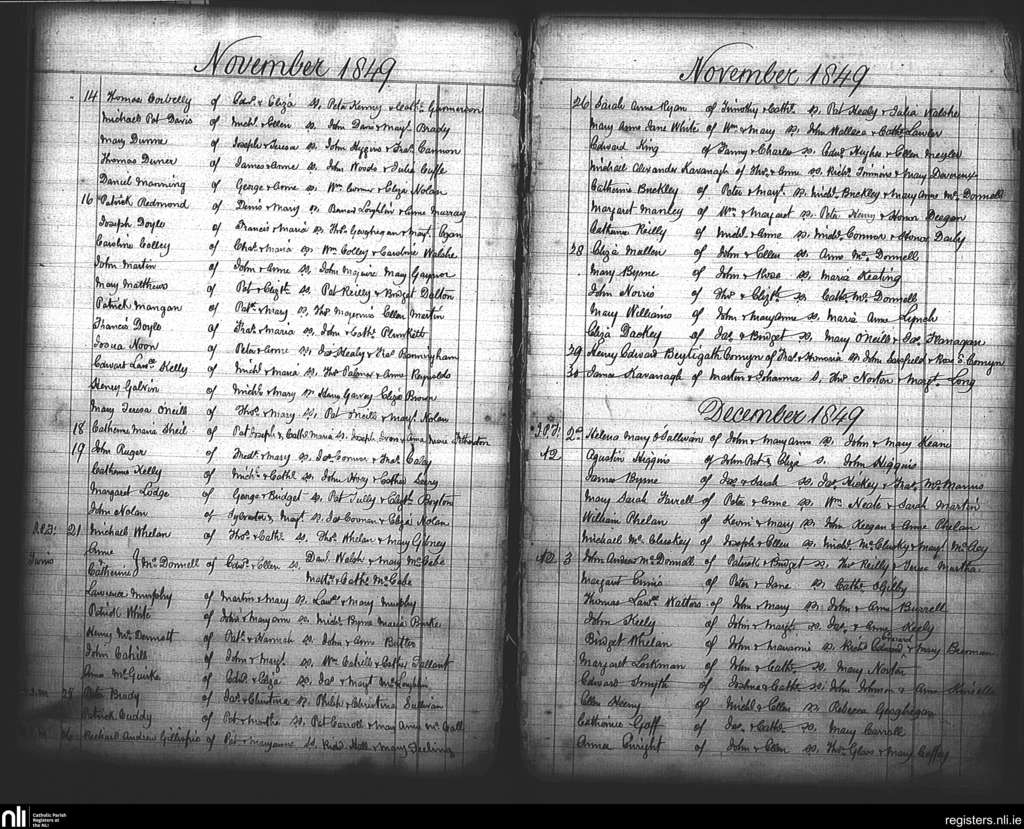 November 1849
14 Thomas Corbelly of Edwd. & Eliza ss. Peter Kenny & Cathe.
Michael Pat Davis of Michl. & Ellen ss. John Davis & Mary Brady
Mary Dunne of Joseph & Teresa ss. John Higgins & Fras. Cannon
Thomas of James & Anne ss. John Woods & Julia Cuffe
Daniel Manning of George & Anne ss. Wm. Connor & Eliza Nolan
16 Patrick Redmond of Denis & Mary ss. Loughlin & Anne Murray
Joseph Doyle of Francis & Maria ss. Thos. Gaughegan & Mary Egan
Caroline Colley of Chas. & Maria ss. Wm. Colley & Caroline Walshe
John Martin of John & Anne ss. John Maguire Mary Gaynor
Mary Matthews of Pat & Elizth. ss. Pat Reilly & Bridget Dalton
Patrick Mangan of Patk. & Mary ss. Thos. Ellen Martin
Francis Doyle of Fras. & Maria ss. John & Cathe. Plunkett
Noon of Peter & Anne ss. Jas. Healy & Frances Bonningham
Edward Lawce. Kelly of Michl. & Maria ss. Thos. Palmer & Anne Reynolds
Henry Galvin of Michl. & Mary ss. Henry Garvey Eliza Brown
Mary Teresa O'Neill of Thos. & Mary ss. Pat O'Neill & Mary Nolan
18 Catherine Maria Sheil of Pat Joseph & Cathe. Maria ss. Joseph & Anna Maria
19 John Ruger of Fredk. & Mary ss. Jas. Connor & Fras. Caley
Catherine Kelly of Michl. & Cathe. ss. John Hoey & Cathe. Leary
Margaret Lodge of George & Bridget ss. Pat Tully & Elizth. Boylan
John Nolan of Sylvester & Margt. ss. Jas. Connan & Eliza Nolan
21 Michael Whelan of Thos. & Cathe. ss. Thos. Whelan & Mary Gibney
Anne
Catherine } McDonnell of Edwd. & Ellen ss. Danl. Walsh & Mary McCabe
Matt. & Cathe. McCabe
Lawrence Murphy of Martin & Mary ss. Lawce. & Mary Murphy
Patrick White of John & Mary Anne ss. Michl. Byrne Maria Burke
Henry McDermott of Pat. & Hannah ss. John & Ann Butler
John Cahill of John & Margt. ss. Wm. Cahill & Cathe. Tallant
Anna McGuirke of Edwd. & Eliza ss. Jas. & Margt. McLoughlin
Peter Brady of Jas. & Christina ss. Philip & Christina Sullivan
Patrick Cuddy of Pat & Martha ss. Pat Carroll & Mary Anne McCall
26 Richard Andrew Gillespie of Pat & Maryanne ss. Richd. Hall & Mary Feeling
November 1849
26 Sarah Anne Ryan of Timothy & Cathe. ss. Pat Healy & Julia Walshe
Mary Anne Jane White of Wm. & Mary ss. John Wallace & Cathe. Lawler
Edward King of Fanny & Charles ss. Edwd. Hughes & Ellen Meyler
Michael Alexander Kavanagh of Thos. & Anne ss. Richd. Timmons & Mary Devereux
Catherine Buckley of Peter & Mary ss. Michl. Buckley & Mary Anne McDonnell
Margaret Manley of Wm. & Margaret ss. Peter Henry & Honor Deegan
Catherine Reilly of Michl. & Anne ss. Michl. Connor & Honor Daily
28 Eliza Mallen of John & Ellen ss. Anne McDonnell
Mary Byrne of John & Rose ss. Maria Keating
John Norris of Thos. & Elizth. ss. Cathe. McDonnell
Mary Williams of John & Mary Anne ss. Maria Anne Lynch
Eliza Dackey of Jas. & Bridget ss. Mary O'Neill & Jas. Flanagan
29 Henry Edward Comyn of Fras. & Honoria ss. John Sarsfield & Comyn
30 James Kavanagh of Martin & Johanna s. Thos. Norton & Margt. Long
December 1849
2nd Helena Mary O'Sullivan of John & Mary Anne ss. John & Mary Keane
Agustin Higgins of John Pat & Eliza s. John Higgins
James Byrne of Jas. & Sarah ss. Jas. Hickey & Fras. McManus
Mary Sarah Farrell of Peter & Anne ss. Wm. Neale & Sarah Martin
William Phelan of Kevin & Mary ss. John Keegan & Anne Phelan
Michael McCluskey of Joseph & Ellen ss. Michl. McClusky & Margt. McCloy
3 John Andrew McDonnell of Patrick & Bridget ss. Thos. Reilly & Teresa Martha
Margaret Ennis of Peter & Jane ss. Cathe. Ogilby
Thomas Lawce. Walters of John & Mary ss. John & Anne Burrell
John Keely of John & Margt. ss. Jas. & Anne Keely
Bridget Whelan of John & Marianne ss. Richd. Edward & Mary Brennan
Margaret Lorkman of John & Cathe. ss. Mary Norton
Edward Smyth of & Cathe. ss. John Johnson & Anne Kinsella
Ellen Heeny of Michl. & Ellen ss. Rebecca Geoghegan
Catherine Goff of Jas. & Cathe. ss. Mary Carroll
Anna Enright of John & Ellen ss. Thos. & Mary Caffrey
nli
Catholic Parish
Registers at
the NLI
registers.nli.ie